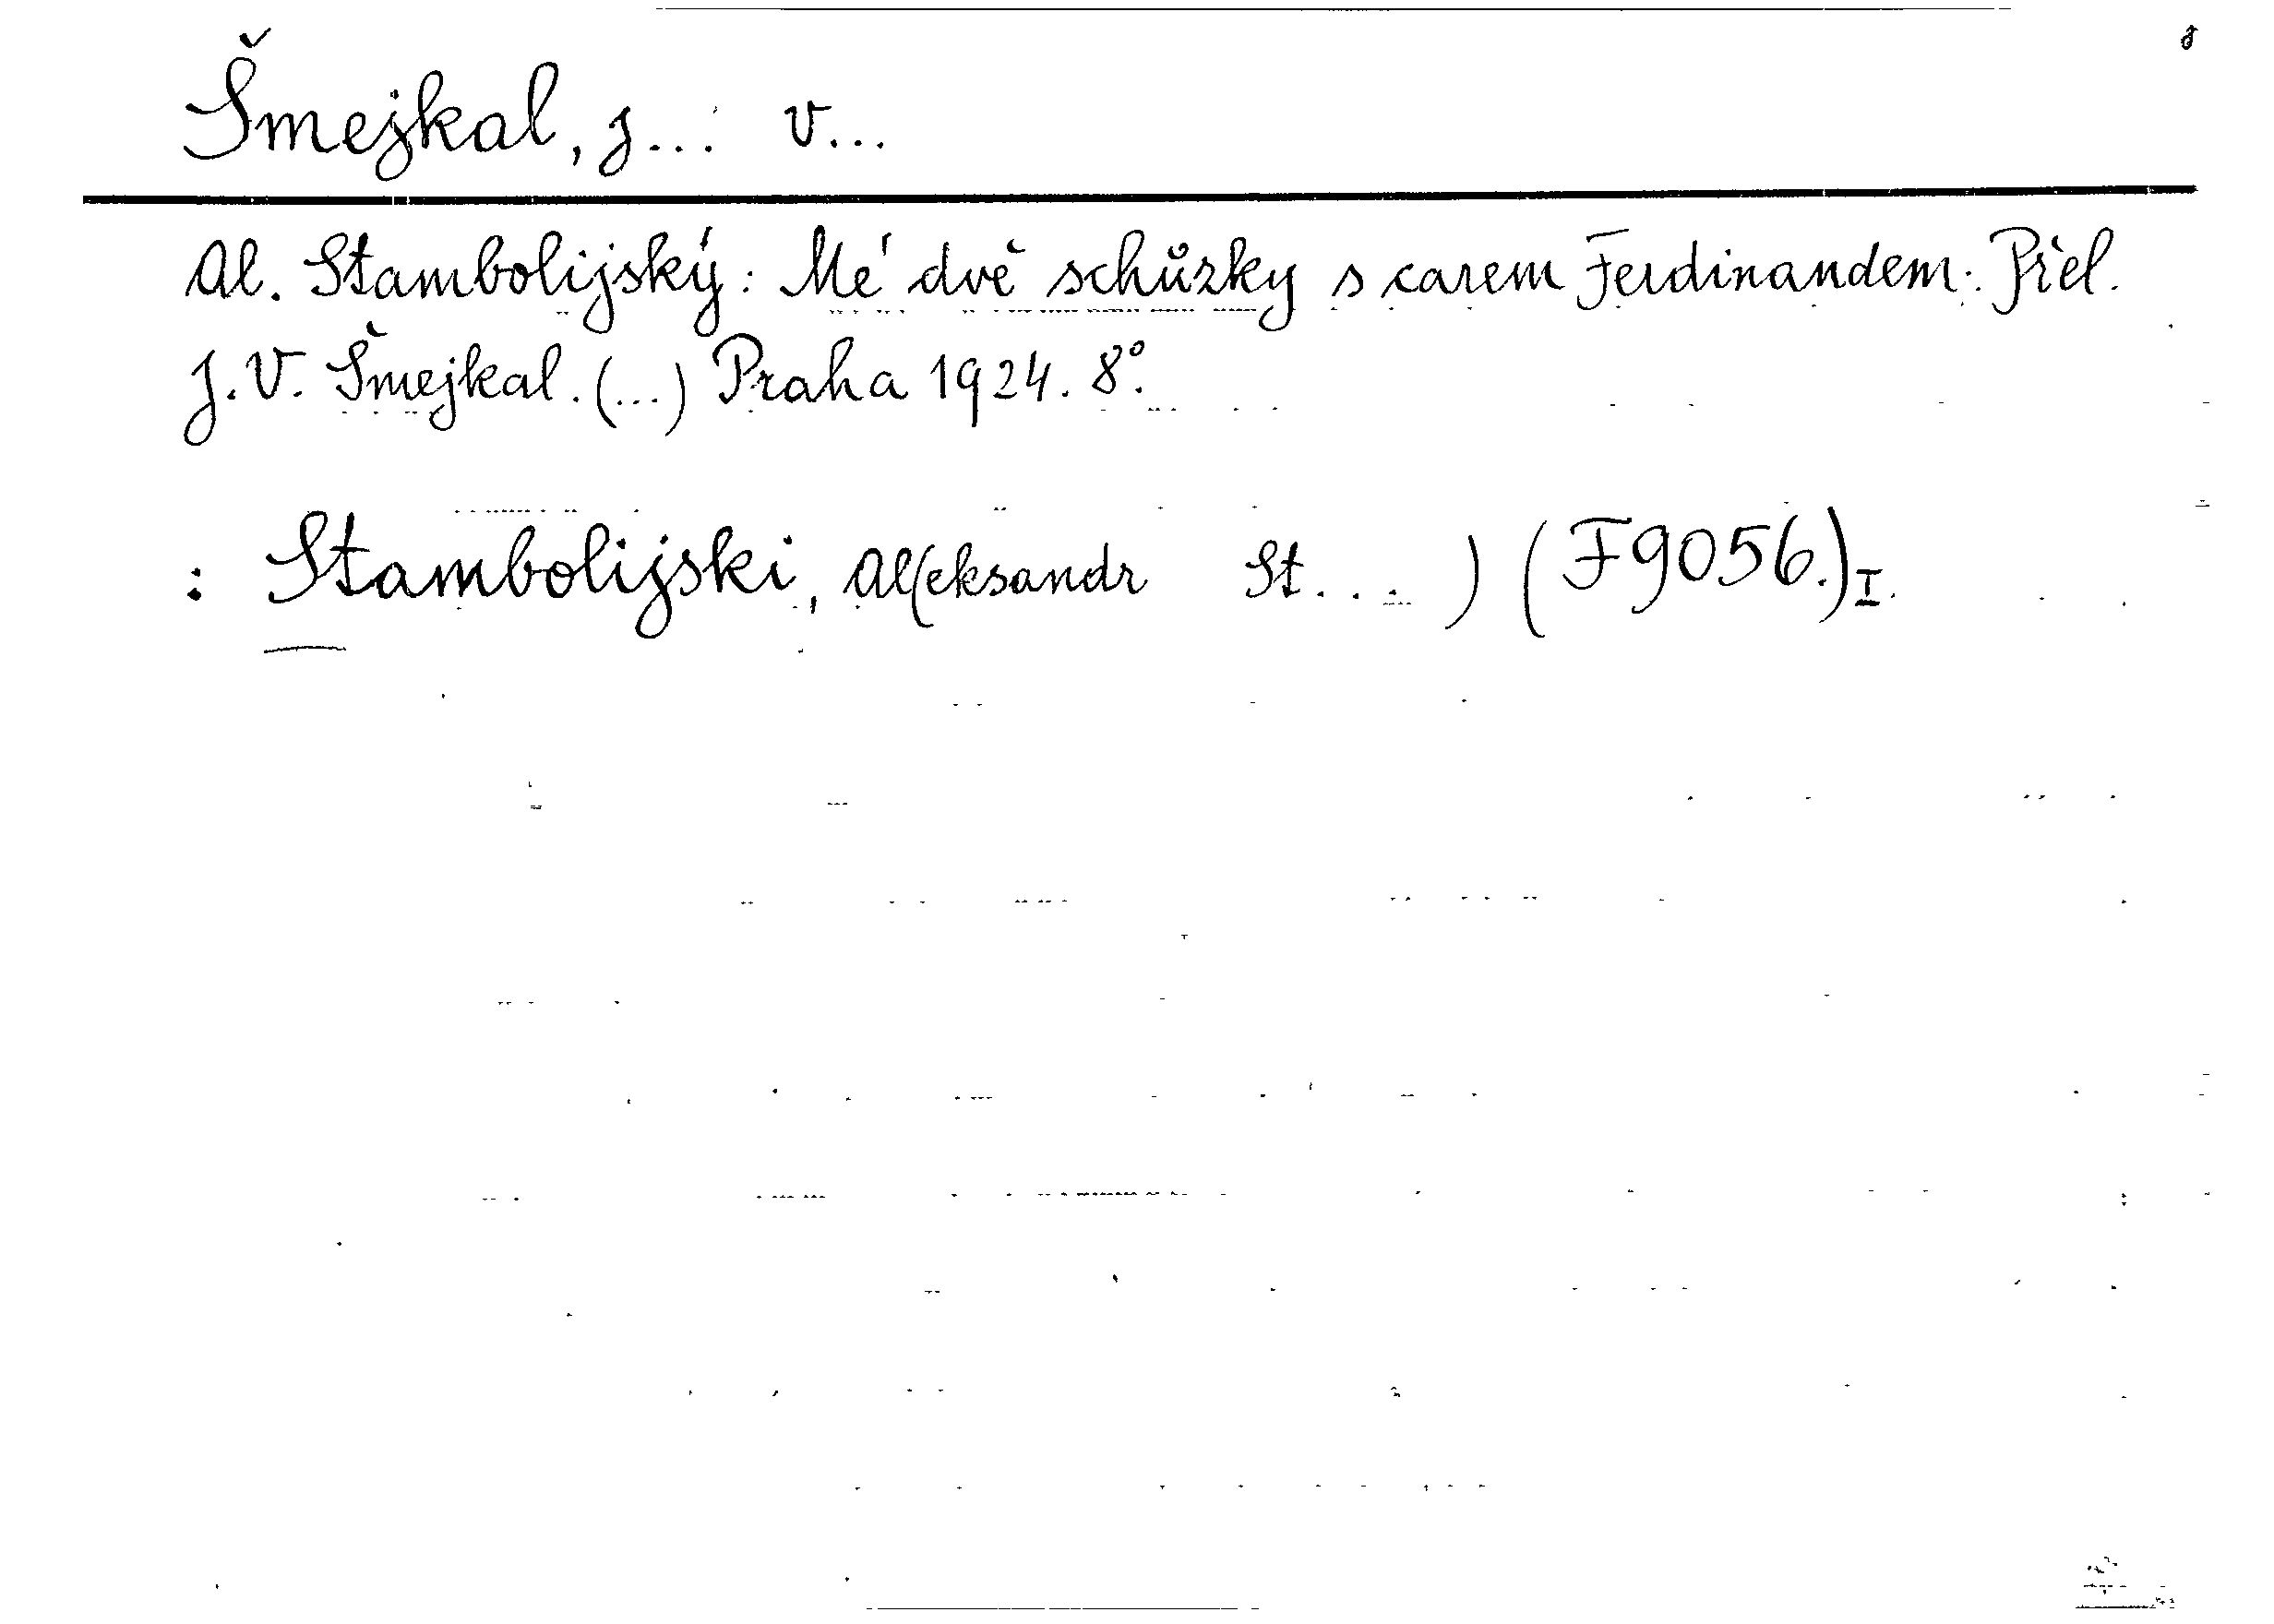 Šmejkal, J... V...
Al. Stambolijský: Mé dvě schůzky s carem Ferdinandem. Přel.
J. V. Šmejkal. (...) Praha 1924. 8°.
: Stambolijski, Al(eksandr St...) (F9056.) I.